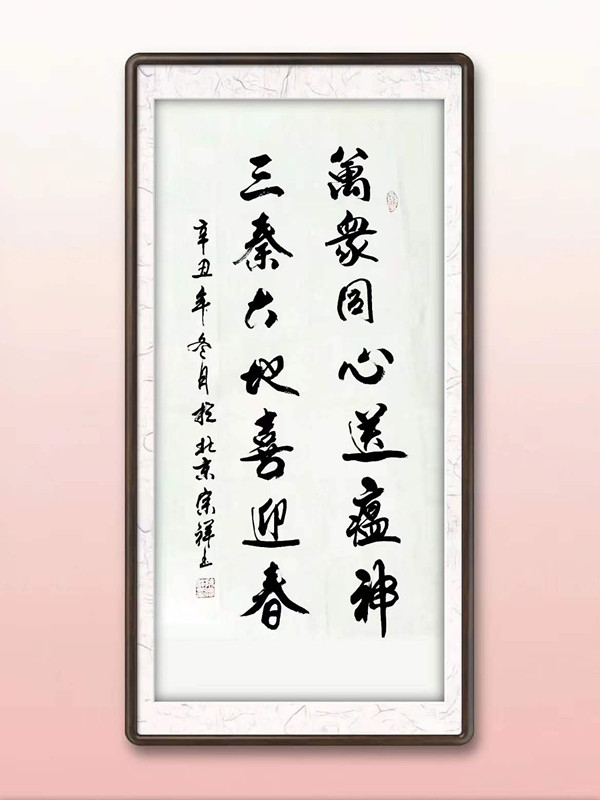 萬衆同心送瘟神
三秦大地喜迎春
辛丑年冬月於北京宗祥书